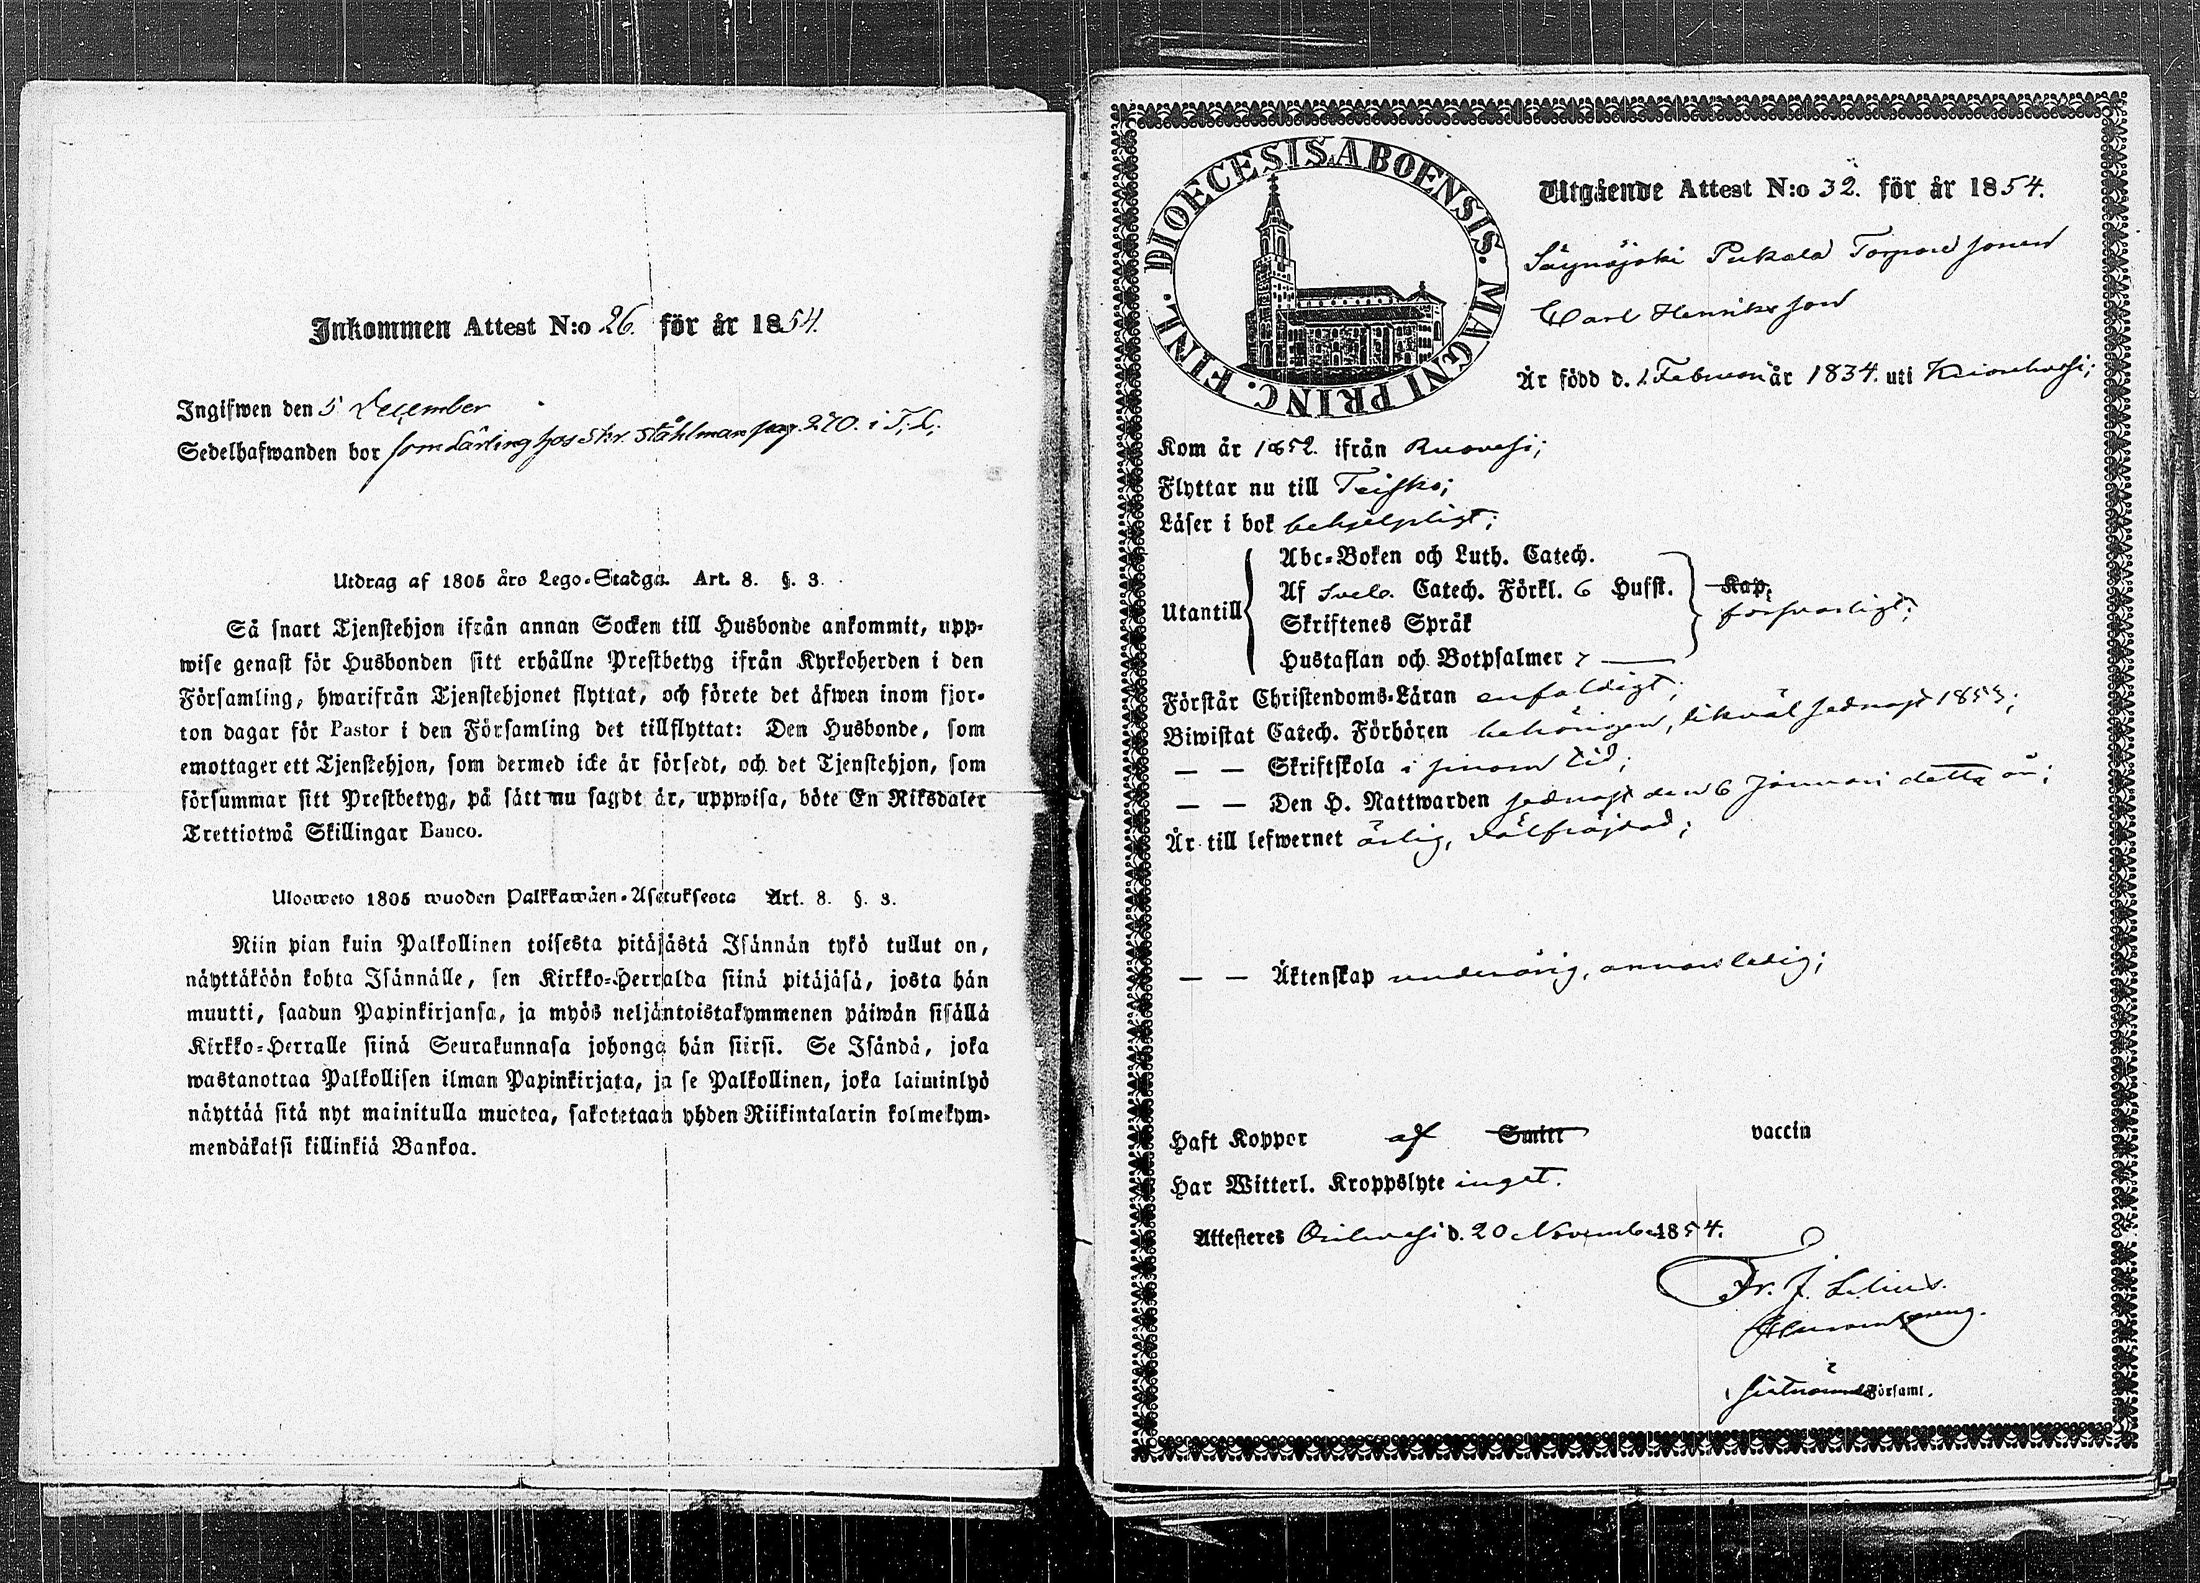 Inkommen Attest N:o 26. för år 1854.
Ingifwen den 5 December
Sedelhafwanden bor som Lärling hos Skr. Ståhlman pag. 270. i T. C.
Utdrag af 1805 års Lego-Stadga. Art. 8. §. 3.
Så snart Tjenstehjon ifrån annan Socken till Husbonde ankommit, upp-
wise genast för Husbonden sitt erhållne Prestbetyg ifrån Kyrkoherden i den
Församling, hwarifrån Tjenstehjonet flyttat, och förete det äfwen inom fjor-
ton dagar för Pastor i den Församling det tillflyttat: Den Husbonde, som
emottager ett Tjenstehjon, som dermed icke är försedt, och det Tjenstehjon, som
försummar sitt Prestbetyg, på sätt nu sagdt är, uppwisa, böte En Riksdaler
Trettiotwå Skillingar Banco.
Ulosweto 1805 wuoden Palkkawäen-Asetuksesta Art. 8. §. 3.
Niin pian kuin Palkollinen toisesta pitäjästä Isännän tykö tullut on,
näyttäköön kohta Isännälle, sen Kirkko-Herralda siinä pitäjäsä, josta hän
muutti, saadun Papinkirjansa, ja myös neljäntoistakymmenen päiwän sisällä
Kirkko-Herralle siinä Seurakunnasa johonga hän siirsi. Se Isändä, joka
wastanottaa Palkollisen ilman Papinkirjata, ja se Palkollinen, joka laiminlyö
näyttää sitä nyt mainitulla muotoa, sakotetaan yhden Riikintalarin kolmekym-
mendäkaksi killinkiä Bankoa.
DIOECESIS ABOENSIS. MAGNI PRINC. FINL.
Utgående Attest N:o 32. för år 1854.
Säynäjoki Pukala Torpare sonen
Carl Henriksson
Är född d. 2 Februari år 1834. uti
Kom år 1852. ifrån Ruovesi;
Flyttar nu till Teisko;
Läser i bok behjelpligt;
Utantill
Abc-Boken och Luth. Catech.
Af Sveb. Catech. Förkl. 6 Hufst.
Skriftenes Språk
Hustaflan och Botpsalmer 7 —
Kap.
försvarligt;
Förstår Christendoms-Läran enfaldigt;
Biwistat Catech. Förhören behörigen, likväl sednast 1853;
— — Skriftskola i sinom tid;
— — Den H. Nattwarden sednast den 6 Januari detta år;
Är till lefwernet ärlig, välfräjdad;
— — Äktenskap underårig, annars ledig;
Haft Koppor af Smitt vaccin
Har Witterl. Kroppslyte inget.
Attesteres Orihvesi d. 20 November 1854.
Fr. J. Lilius.
i Församl.